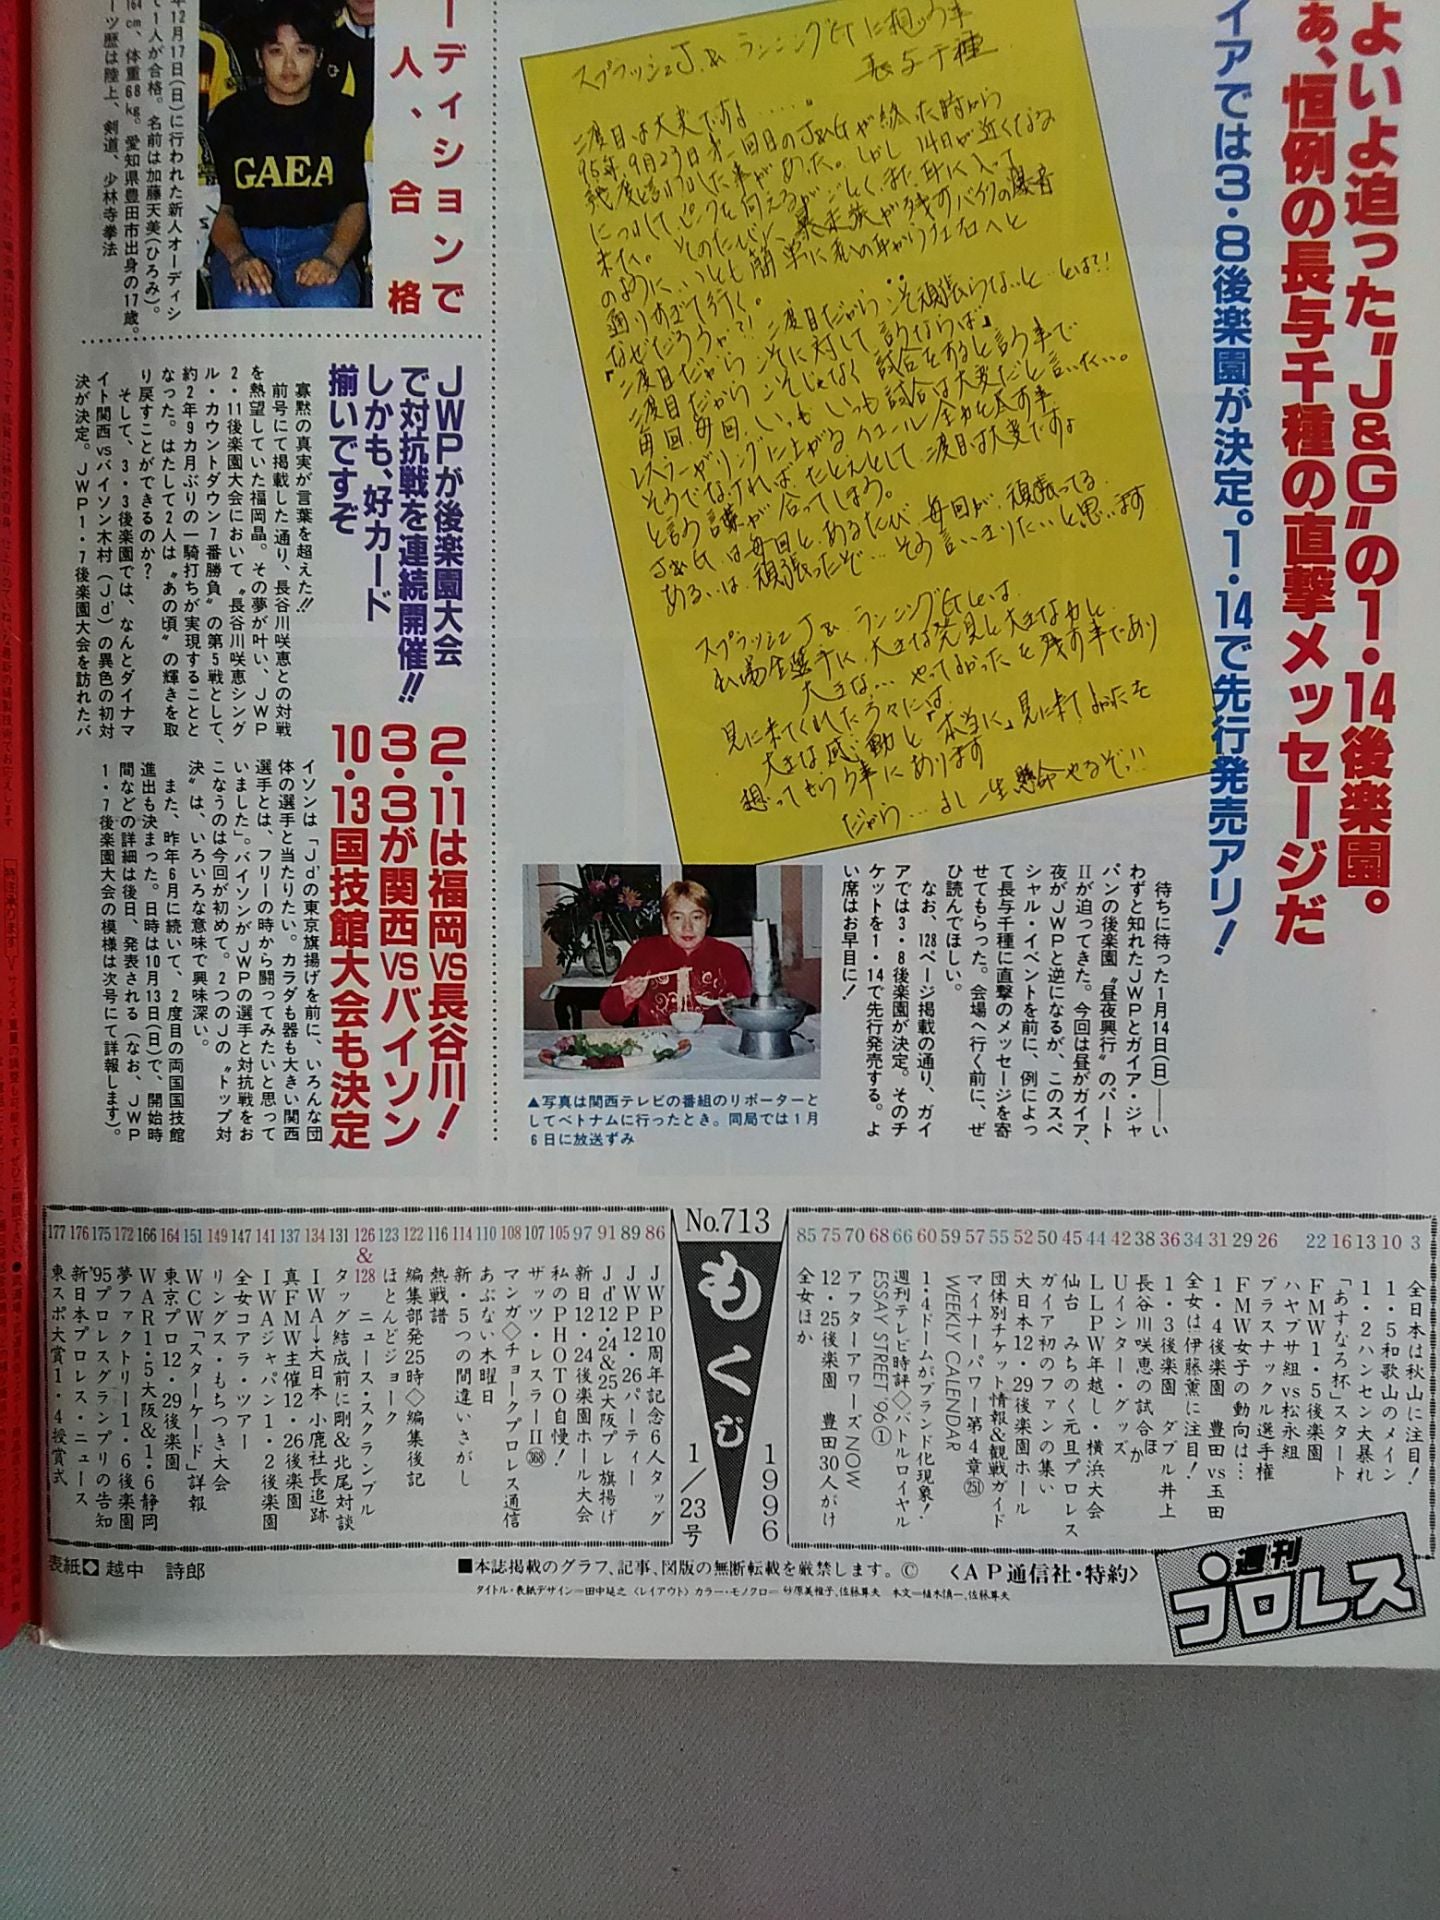 よいよ迫った"J&G"の1・14後楽園。
あ、恒例の長与千種の直撃メッセージだ
イアでは3・8後楽園が決定。1・14で先行発売アリ!
スプラッシュJ.&.ランニングGに想う事
長与千種
二度目は大変ですよ......。
95年9月23日第一回目のJ&Gが終った時から
幾度と言われた事があった。しかし14日が近くなる
につれて、ピークを迎えるがごとく、また耳に入って
来た。そのたびに、暴走族が残すバイクの爆音
のように、いとも簡単に私の耳から左右へと
通りすぎて行く。
なぜだろうか?!
『二度目だからこそ、二度目だからこそ頑張らないと…とは?!
二度目だからこそに対して言うならば』
二度目だからこそじゃなく試合をすると言う事で
毎回、毎回、いつもいつも試合は大変だと言いたい。
レスラーがリングに上がるイコール全力を尽す事
そうでなければ、たとえとして、二度目は大変ですよ
と言う言葉が合ってしまう。
J&G.は毎回と、あるたび、毎回が、頑張ってる
あるいは、頑張ったぞ…そう言いきりたいと思います
スプラッシュJ&.ランニングGとは、
出場全選手に、大きな発見と大きな力と、
大きな…やってよかったを残す事であり
見に来てくれた方々には、
大きな感動と『本当に』見に来てよかったを
想ってもらう事にあります
だから…よし一生懸命やるぞっ!!
待ちに待った1月14日(日)――い
わずと知れたJWPとガイア・ジャ
パンの後楽園"昼夜興行"のパート
IIが迫ってきた。今回は昼がガイア、
夜がJWPと逆になるが、このスペ
シャル・イベントを前に、例によっ
て長与千種に直撃のメッセージを寄
せてもらった。会場へ行く前に、ぜ
ひ読んでほしい。
なお、128ページ掲載の通り、ガイ
アでは3・8後楽園が決定。そのチ
ケットを1・14で先行発売する。よ
い席はお早目に!
▲写真は関西テレビの番組のリポーターと
してベトナムに行ったとき。同局では1月
6日に放送ずみ
ーディションで
人、合格
GAEA
年12月17日(日)に行われた新人オーディシ
て1人が合格。名前は加藤天美(ひろみ)。
164cm、体重68kg。愛知県豊田市出身の17歳。
ーツ歴は陸上、剣道、少林寺拳法
JWPが後楽園大会
で対抗戦を連続開催!!
しかも、好カード
揃いですぞ
2・11は福岡vs長谷川!
3・3が関西vsバイソン
10・13国技館大会も決定
寡黙の真実が言葉を超えた!!
前号にて掲載した通り、長谷川咲恵との対戦
を熱望していた福岡晶。その夢が叶い、JWP
2・11後楽園大会において"長谷川咲恵シング
ル・カウントダウン7番勝負"の第5戦として、
約2年9カ月ぶりの一騎打ちが実現することと
なった。はたして2人は"あの頃"の輝きを取
り戻すことができるのか?
そして、3・3後楽園では、なんとダイナマ
イト関西vsバイソン木村(Jd')の異色の初対
決が決定。JWP1・7後楽園大会を訪れたバ
イソンは「Jd'の東京旗揚げを前に、いろんな団
体の選手と当たりたい。カラダも器も大きい関西
選手とは、フリーの時から闘ってみたいと思って
いました」。バイソンがJWPの選手と対抗戦をお
こなうのは今回が初めて。2つのJの"トップ対
決"は、いろいろな意味で興味深い。
また、昨年6月に続いて、2度目の両国国技館
進出も決まった。日時は10月13日(日)で、開始時
間などの詳細は後日、発表される(なお、JWP
1・7後楽園大会の模様は次号にて詳報します)。
No.713
もくじ
1996
1/23号
3 全日本は秋山に注目!
10 1・5和歌山のメイン
13 1・2ハンセン大暴れ
16 「あすなろ杯」スタート
22 FMW1・5後楽園
ハヤブサ組vs松永組
26 プラスナックル選手権
29 FMW女子の動向は…
31 1・4後楽園 豊田vs玉田
34 全女は伊藤薫に注目!
36 1・3後楽園 ダブル井上
38 長谷川咲恵の試合ほか
42 Uインター・グッズ
44 LLPW年越し・横浜大会
45 仙台 みちのく元旦プロレス
50 ガイア初のファンの集い
52 大日本12・29後楽園ホール
55 団体別チケット情報&観戦ガイド
57 マイナーパワー第4章(251)
59 WEEKLY CALENDAR
60 1・4ドームがブランド化現象!
66 週刊テレビ時評◇バトルロイヤル
68 ESSAY STREET'96(1)
70 アフターアワーズNOW
75 12・25後楽園 豊田30人がけ
85 全女ほか
86 JWP10周年記念6人タッグ
89 JWP12・26パーティー
91 Jd'12・24&25大阪プレ旗揚げ
97 新日12・24後楽園ホール大会
105 私のPHOTO自慢!
107 ザッツ・レスラーII(368)
108 マンガ◇チョークプロレス通信
110 あぶない木曜日
114 新・5つの間違いさがし
116 熱戦譜
122 編集部発25時◇編集後記
123 ほとんどジョーク
126&128 ニュース・スクランブル
131 タッグ結成前に剛&北尾対談
134 IWA→大日本 小鹿社長追跡
137 真FMW主催12・26後楽園
141 IWAジャパン1・2後楽園
147 全女コアラ・ツアー
149 リングス・もちつき大会
151 WCW「スターケード」詳報
164 東京プロ12・29後楽園
166 WAR1・5大阪&1・6静岡
172 夢ファクトリー1・6後楽園
175 '95プロレスグランプリの告知
176 新日本プロレス・ニュース
177 東スポ大賞1・4授賞式
表紙◆越中 詩郎
■本誌掲載のグラフ、記事、図版の無断転載を厳禁します。© 〈AP通信社・特約〉
週刊プロレス